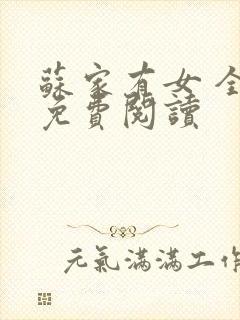 蘇家有女 全
免費閱讀
元氣滿滿工作